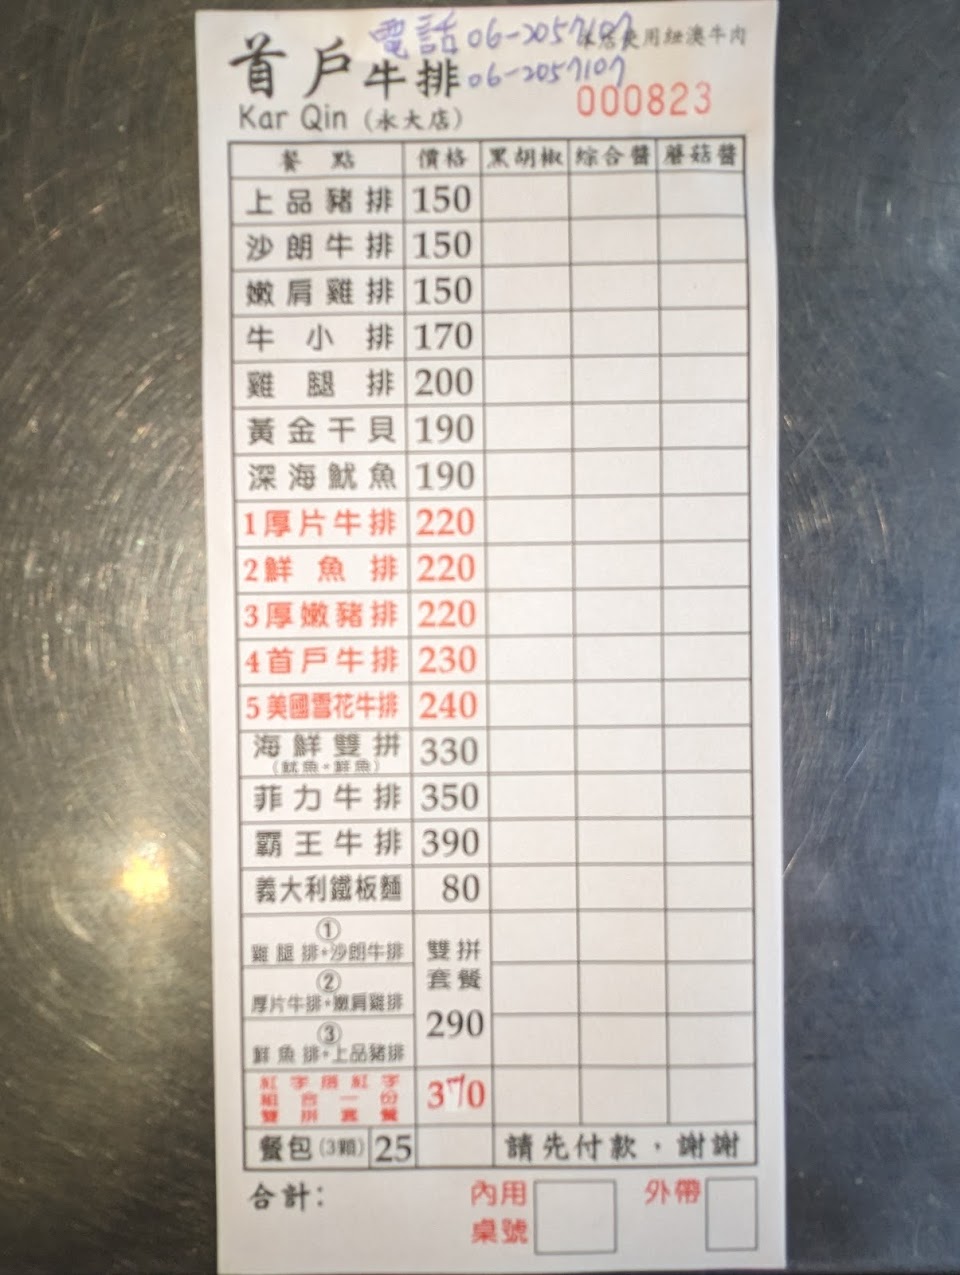 電話 06-2057107
本店使用紐澳牛肉
首戶牛排 06-2057107
000823
Kar Qin (永大店)
餐點 價格 黑胡椒 綜合醬 蘑菇醬
上品豬排 150
沙朗牛排 150
嫩肩雞排 150
牛小排 170
雞腿排 200
黃金干貝 190
深海魷魚 190
1厚片牛排 220
2鮮魚排 220
3厚嫩豬排 220
4首戶牛排 230
5美國雪花牛排 240
海鮮雙拼 330
(魷魚+鮮魚)
菲力牛排 350
霸王牛排 390
義大利鐵板麵 80
①
雞腿排+沙朗牛排
②
厚片牛排+嫩肩雞排
③
鮮魚排+上品豬排
雙拼
套餐
290
紅字搭紅字
組合一份
雙拼套餐
370
餐包(3顆) 25 請先付款,謝謝
合計: 內用 外帶
桌號